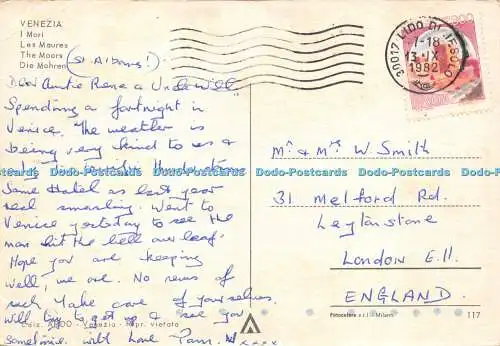 VENEZIA
I Mori
Les Maures
The Moors
Die Mohren
(St Albans!)
Dear Auntie Rene & Uncle Will
Spending a fortnight in
Venice. The weather is
being very kind to us &
Same Hotel as last year
real smashing. Went to
Venice yesterday to see the
man hit the bell
Hope you are keeping
well, we are. No news of
such Take care of yourselves
will try to get up & see you
sometime. with love Pam. xxxx
Ediz. ARDO - Venezia - Ripr. vietata
30017 LIDO DI JESOLO
-18
13 IX
1982
Mr & Mrs W. Smith
31 Melford Rd.
Leytonstone
London E.11.
ENGLAND.
Fotocelere s.r.l. - Milano
117
Dodo-Postcards Dodo-Postcards Dodo-Postcards Dodo-Postcards Dodo-Postcards Dodo-Postcards